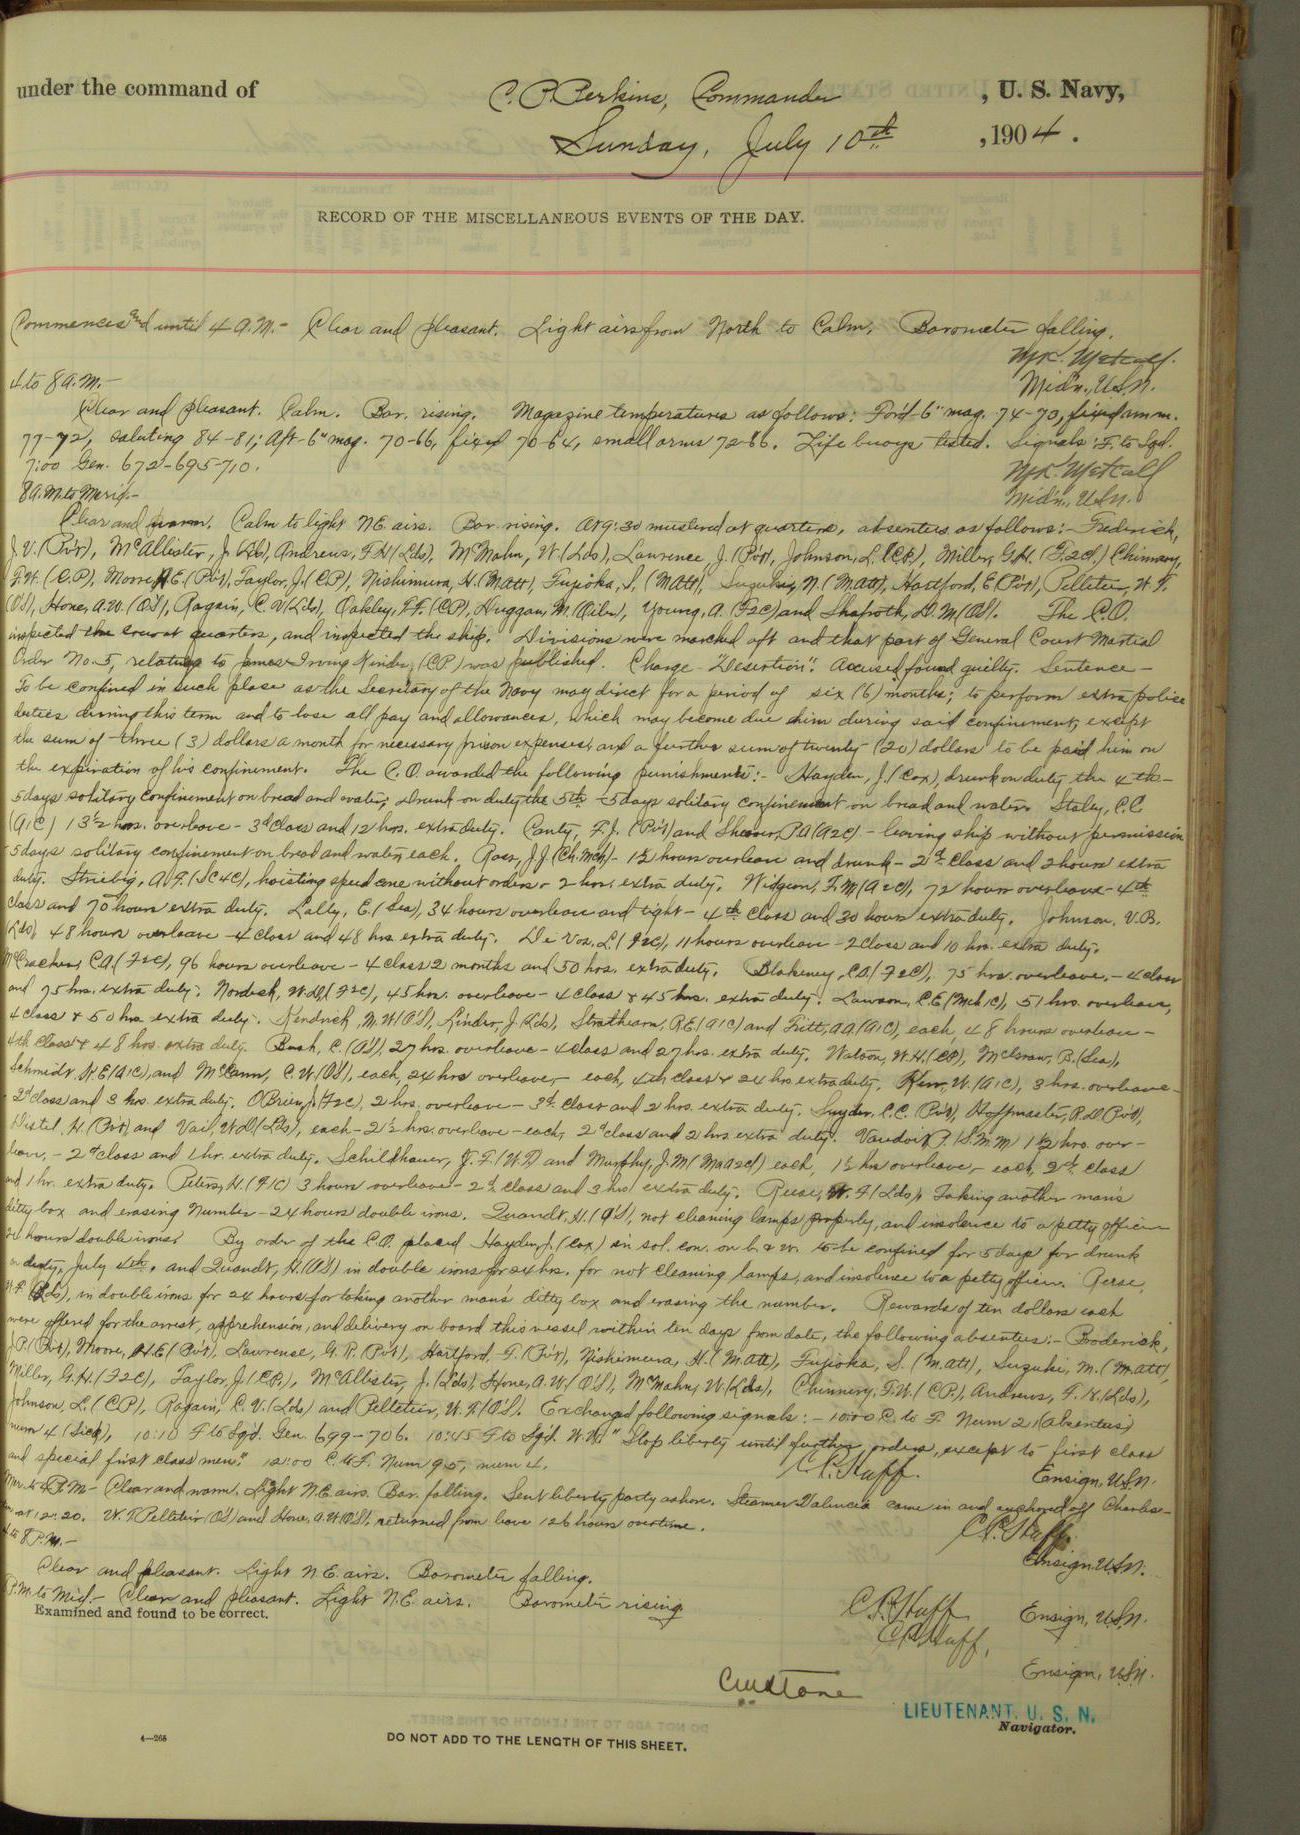 under the command of C. P. Perkins, Commander , U. S. Navy,
Sunday, July 10th , 1904 .
RECORD OF THE MISCELLANEOUS EVENTS OF THE DAY.
Commences and until 4 A.M.- Clear and pleasant. Light airs from North to Calm. Barometer falling.
M.K. Metcalf.
4 to 8 A.M.-
Mid'n., U.S.N.
Clear and pleasant. Calm. Bar. rising. Magazine temperatures as follows: For'd 6" mag. 74-73, fixed amm.
77-72, saluting 84-81; Aft-6" mag. 70-66, fixed 70-64, small arms 72-66. Life buoys tested. Signals: F. to Sqd.
7:00 Gen. 672-695-710.
M.K. Metcalf
8 A.M. to Merid.-
Mid'n., U.S.N.
Clear and warm. Calm to light N.E. airs. Bar. rising. At 9:30 mustered at quarters, absentees as follows:- Frederick,
J.V. (Pvt), McAllister, J. (Lds), Andrews, F.H. (Lds), McMahn, W. (Lds), Lawrence, J. (Pvt), Johnson, L. (CP), Miller, G.H. (F2C) Chinnery,
F.W. (C.P), Moore, H.E. (Pvt), Taylor, J. (CP), Nishimura, H. (Matt), Fujioka, S. (Matt), Suzuki, N. (Matt), Hartford, E. (Pvt), Pelletier, W.F.
(OS), Hone, A.W. (OS), Ragain, C.V. (Lds), Oakley, F.F. (CP), Huggan, M. (Oiler), Young, A. (F2C) and Shafroth, D.M (OS). The C.O.
inspected the crew at quarters, and inspected the ship. Divisions were marched aft and that part of General Court Martial
Order No. 5, relating to James Irving Kinder, (CP) was published. Charge "Desertion". Accused found guilty. Sentence-
To be confined in such place as the Secretary of the Navy may direct for a period of six (6) months; to perform extra police
duties during this term and to lose all pay and allowances, which may become due him during said confinement, except
the sum of three (3) dollars a month for necessary prison expenses, and a further sum of twenty (20) dollars to be paid him on
the expiration of his confinement. The C.O. awarded the following punishments:- Hayden, J. (Cox), drunk on duty the 4th-
5 days solitary confinement on bread and water; drunk on duty the 5th -5 days solitary confinement on bread and water. Staley, C.C.
(A1C) 13½ hrs. overleave - 3d class and 12 hrs. extra duty. Canty, F.J. (Pvt) and Shearer, P.A (A2C) - leaving ship without permission
5 days solitary confinement on bread and water, each. Ross, J.J. (Ch.Mch) - 1½ hours overleave and drunk - 2d class and 2 hours extra
duty. Striebig, A.F. (SC4C), hoisting speed cone without orders - 2 hrs. extra duty. Widgeon, F.M (A2C), 72 hours overleave - 4th
class and 70 hours extra duty. Lally, E. (Sea), 34 hours overleave and tight - 4th class and 30 hours extra duty. Johnson, V.B.
(Lds), 48 hours overleave - 4 class and 48 hrs. extra duty. De Vos, L. (F2C), 11 hours overleave - 2 class and 10 hrs. extra duty.
McCracken, C.A. (F2C), 96 hours overleave - 4 class 2 months and 50 hrs. extra duty. Blakeney, C.D. (F2C), 75 hrs. overleave, - 4 class
and 75 hrs. extra duty. Nordick, W.D. (F2C), 45 hrs. overleave - 4 class & 45 hrs. extra duty. Lawson, C.E. (Mch 1C), 51 hrs. overleave,
4 class & 50 hrs extra duty. Kindrick, M.W (OS), Linder, J. (Lds), Strathearn, R.E. (A1C) and Fritt, A.A (A1C), each, 48 hours overleave -
4th class & 48 hrs. extra duty. Bush, C. (OS), 27 hrs. overleave - 4 class and 27 hrs. extra duty. Watson, W.H. (CP), McGraw, B. (Sea),
Schmidt, H.E (A1C), and McCann, C.W. (OS), each, 24 hrs overleave, - each, 4th class & 24 hrs extra duty. Kerr, W. (A1C), 3 hrs. overleave -
2d class and 3 hrs. extra duty. O'Brien, J. (F2C), 2 hrs. overleave - 3d class and 2 hrs. extra duty. Snyder, C.C. (Pvt), Hoffmaster, R.D (Pvt),
Distel, H. (Pvt) and Vail, W.D (Lds), each - 2½ hrs. overleave - each, 2d class and 2 hrs extra duty. P. (S.M.M) 1½ hrs. over-
leave, - 2d class and 1 hr. extra duty. Schildhauer, J.F. (W.T) and Murphy, J.M (MAA2C) each, 1½ hrs overleave, - each, 2d class
and 1 hr. extra duty. Peters, H. (F1C) 3 hours overleave - 2d class and 3 hrs extra duty. Reese, W.F (Lds), Taking another man's
ditty box and erasing number - 24 hours double irons. Quandt, H. (OS), not cleaning lamps properly, and insolence to a petty officer
24 hours double irons. By order of the C.O. placed Hayden, J. (Cox) in sol. con. on b. & w. to be confined for 5 days for drunk
on duty, July 4th, and Quandt, H. (OS) in double irons for 24 hrs. for not cleaning lamps, and insolence to a petty officer. Reese,
W.F. (Lds), in double irons for 24 hours for taking another man's ditty box and erasing the number. Rewards of ten dollars each
were offered for the arrest, apprehension, and delivery on board this vessel within ten days from date, the following absentees:- Broderick,
J.P. (Pvt), Moore, H.E (Pvt), Lawrence, G.R. (Pvt), Hartford, F. (Pvt), Nishimura, H. (Matt), Fujioka, S. (Matt), Suzuki, M. (Matt),
Miller, G.H. (F2C), Taylor, J. (CP.), McAllister, J. (Lds), Hone, A.W. (OS), McMahn, W. (Lds), Chinnery, F.W. (CP), Andrews, F.H. (Lds),
Johnson, L. (CP), Ragain, C.V. (Lds) and Pelletier, W.F. (OS). Exchanged following signals:- 10:00 C. to F. Num 21 (absentees)
num 4 (sick), 10:10 F to Sqd. Gen. 699-706. 10:45 F to Sqd. W.W. "Stop liberty until further orders, except to first class
and special first class men." 12:00 C. to F. Num 95, num 4.
C.P. Huff.
Ensign, U.S.N.
Mer. to 4 P.M- Clear and warm. Light N.E. airs. Bar. falling. Sent liberty party ashore. Steamer Valencia came in and anchored off Charles-
ton at 12:20. W.F. Pelletier (OS) and Hone, A.W (OS), returned from leave 126 hours overtime.
C.P. Huff.
4 to 8 P.M.-
Ensign U.S.N.
Clear and pleasant. Light N.E. airs. Barometer falling.
P.M. to Mid.- Clear and pleasant. Light N.E. airs. Barometer rising
C.P. Huff Ensign, U.S.N.
Examined and found to be correct.
C.P. Huff,
Ensign, U.S.N.
LIEUTENANT, U. S. N.
Navigator.
4—268
DO NOT ADD TO THE LENGTH OF THIS SHEET.